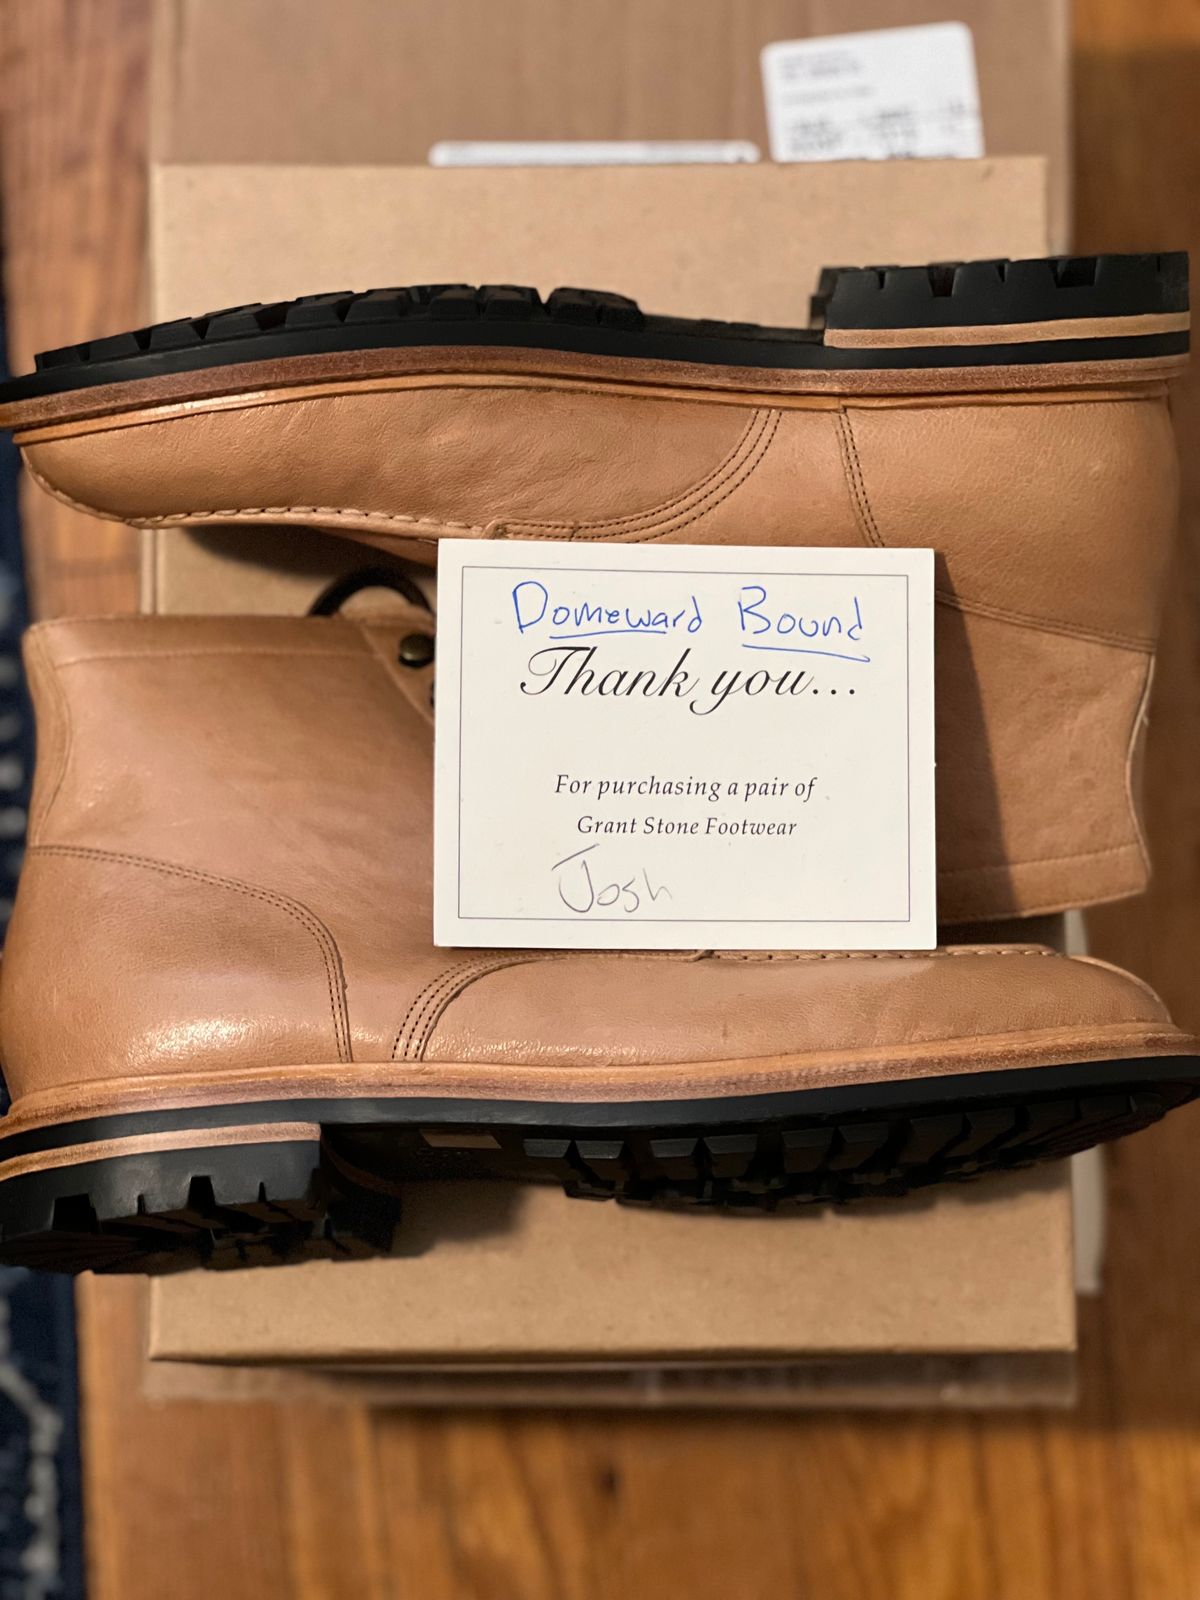 Domeward Bound
Thank you...
For purchasing a pair of
Grant Stone Footwear
Josh